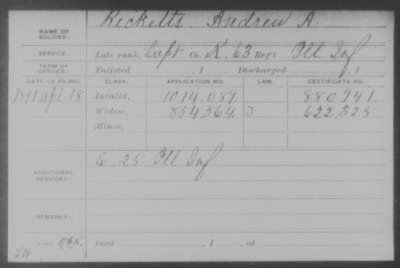 NAME OF SOLDIER: Ricketts, Andrew A.
SERVICE: Late rank, Capt Co. K, 63 Reg't Ill Inf
TERM OF SERVICE: Enlisted , 1 Discharged , 1
DATE OF FILING CLASS. APPLICATION NO. LAW. CERTIFICATE NO.
1891 Apl 18 Invalid, 1014.089. 880.941.
Widow, 854.364. J 622.325
Minor,
ADDITIONAL SERVICE: E. 25 Ill Inf
REMARKS:
Died , 1 , at